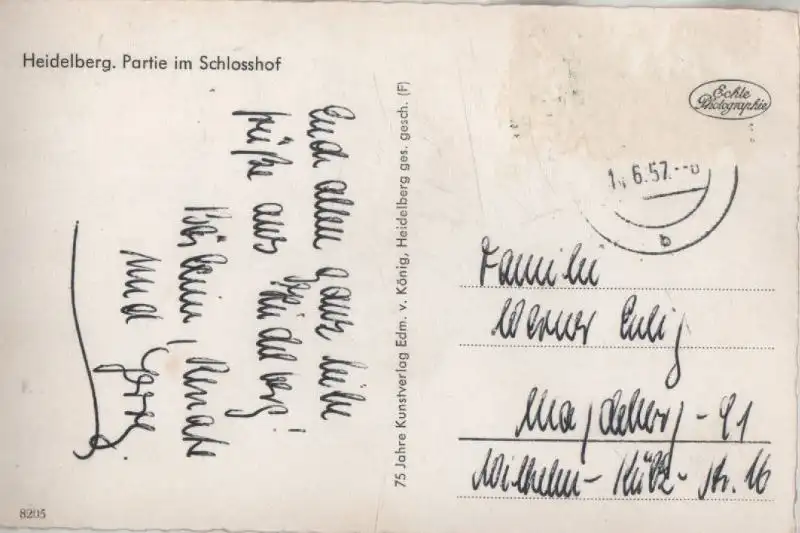 Heidelberg. Partie im Schlosshof
Euch allen ganz liebe
Grüße aus Heidelberg!
Renate
und
75 Jahre Kunstverlag Edm. v. König, Heidelberg ges. gesch. (F)
Echte
Photographie
6.57.
b
Familie
Werner
Magdeburg-
Wilhelm-Külz-Str. 16
8205